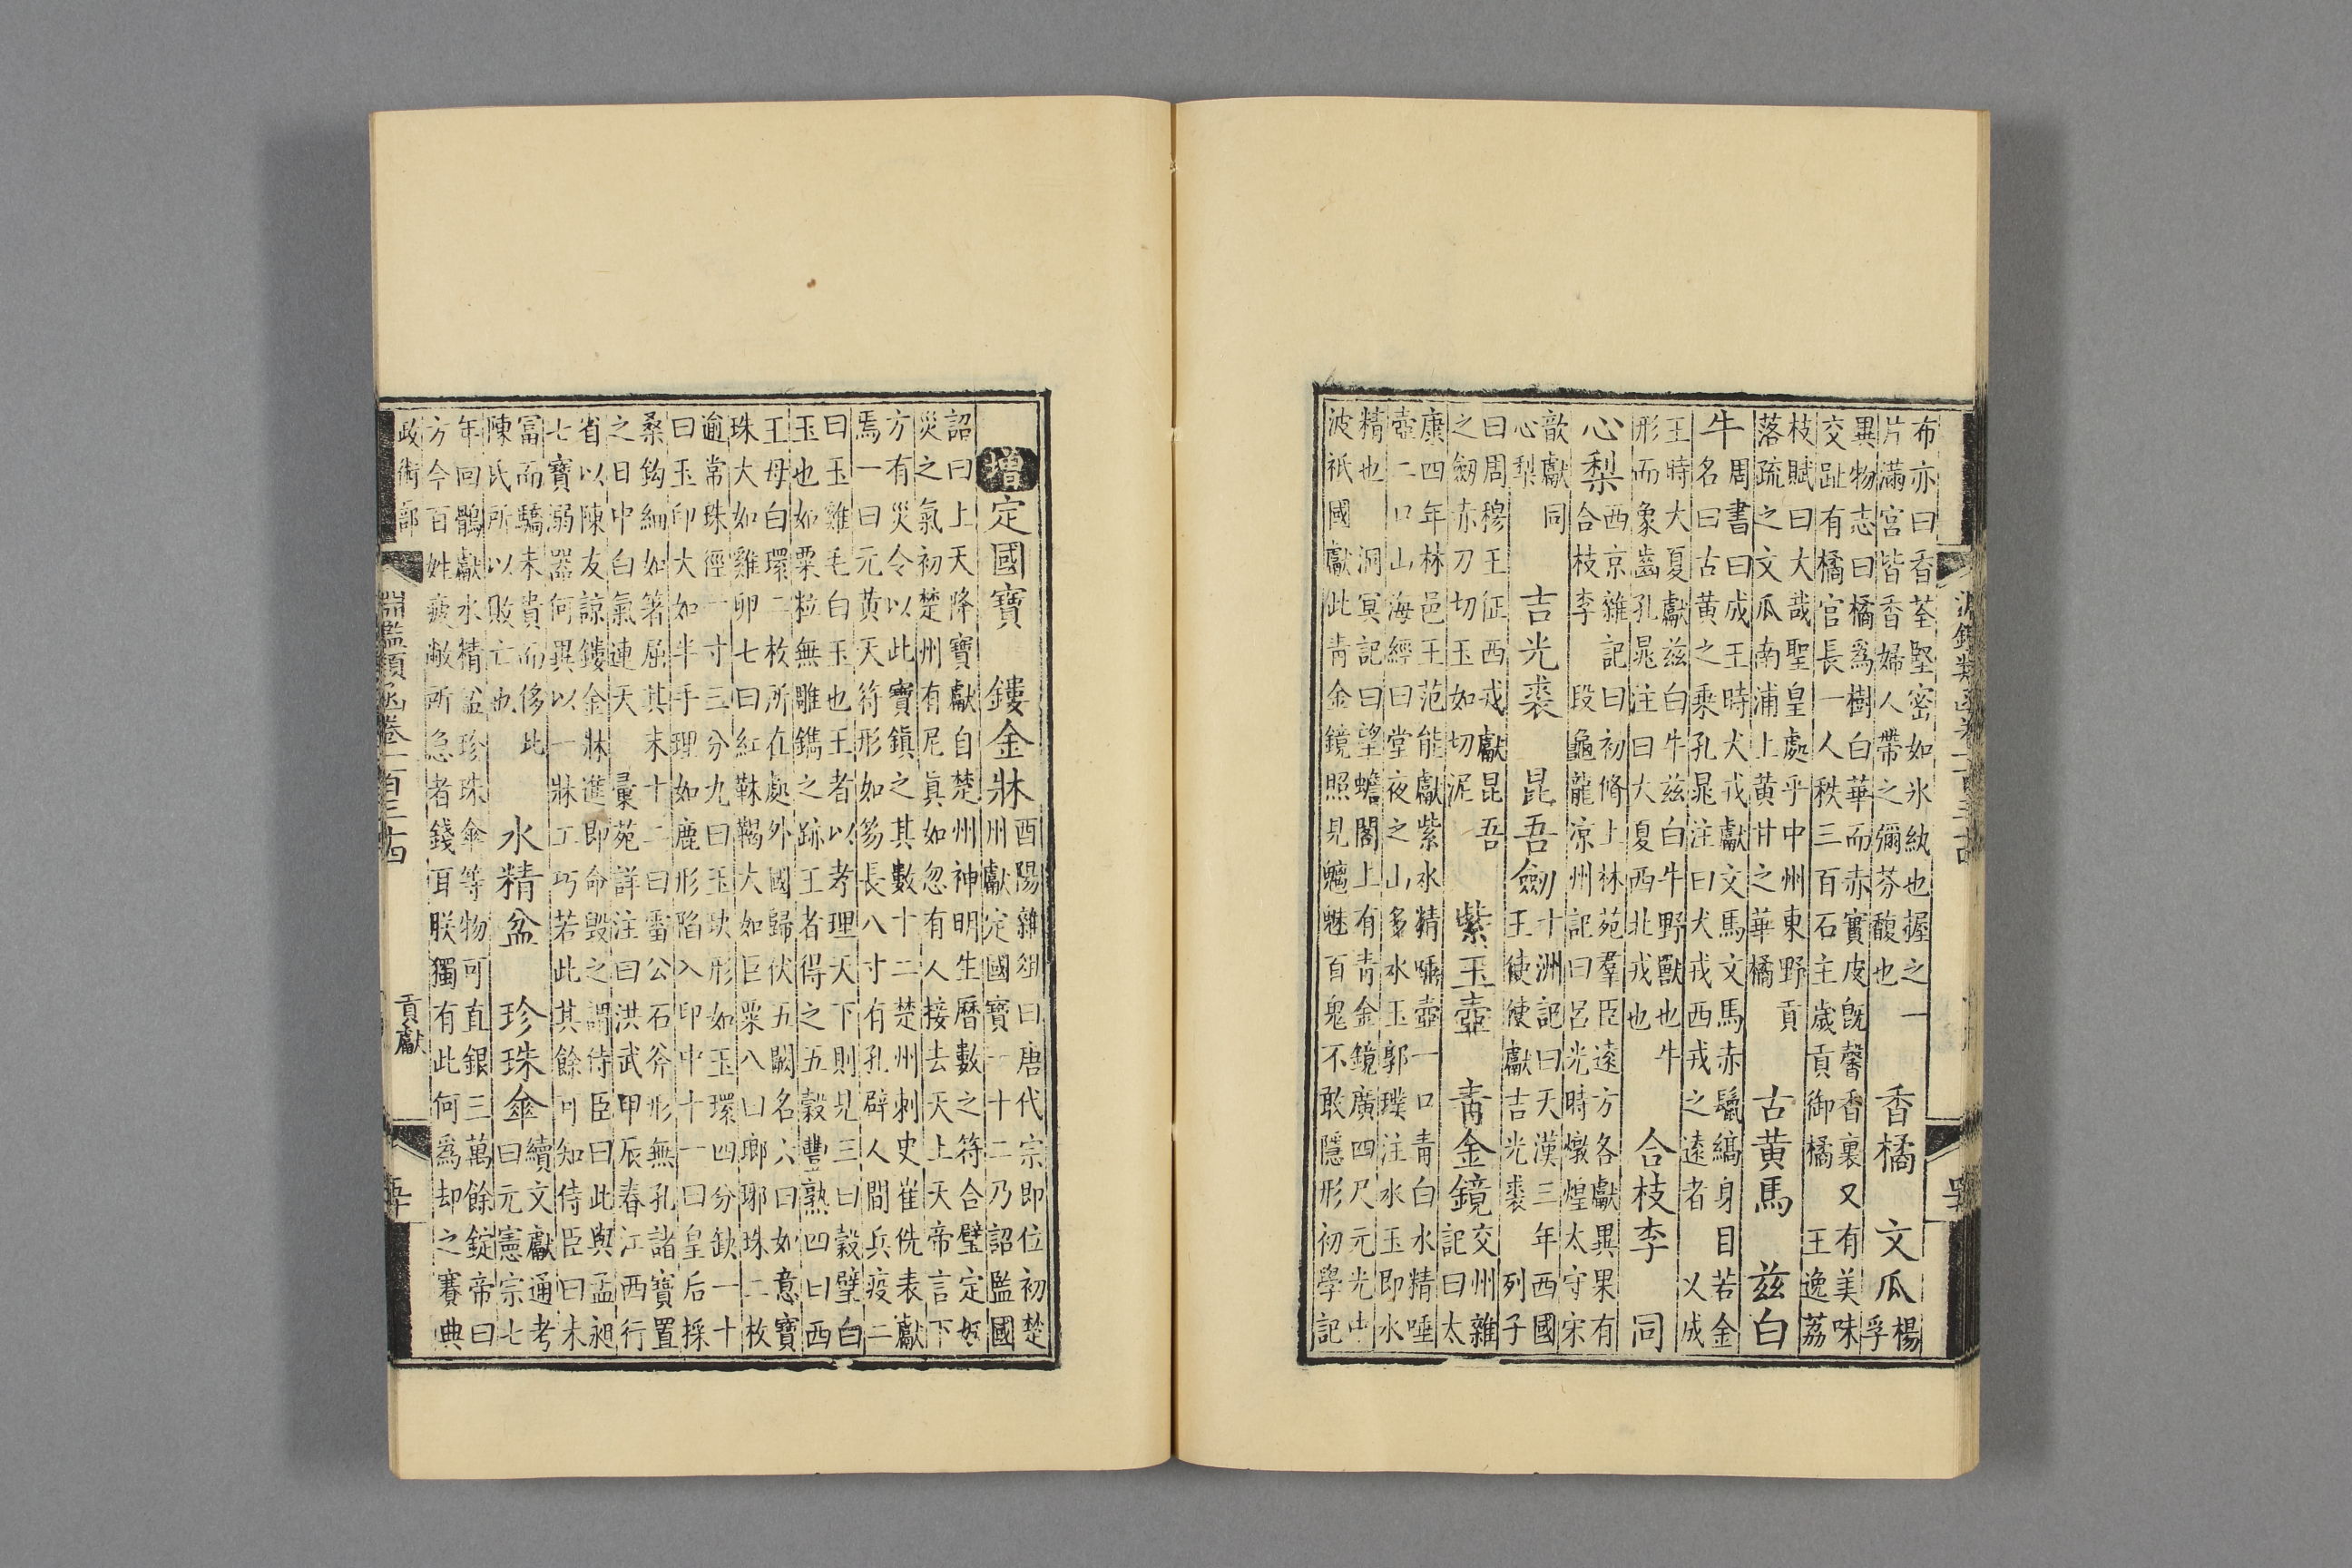 布亦曰香荃堅密如冰紈也握之一
片滿宮皆香婦人帶之彌芬馥也
香橘　文瓜
楊
孚
異物志曰橘爲樹白華而赤實皮旣馨香裏又有美味
交趾有橘官長一人秩三百石主歲貢御橘　王逸荔
枝賦曰大哉聖皇處乎中州東野貢
落疏之文瓜南浦上黄甘之華橘
古黄馬　茲白
牛
周書曰成王時犬戎獻文馬文馬赤鬣縞身目若金
名曰古黄之乘孔晁注曰犬戎西戎之遠者　以成
王時大夏獻兹白牛兹白牛野獸也牛
形而象齒孔晁注曰大夏西北戎也
合枝李　同
心梨
西京雜記曰初脩上林苑羣臣遠方各獻異果有
合枝李　段龜龍凉州記曰呂光時燉煌太守宋
歆獻同
心梨
吉光裘　昆吾劍
十洲記曰天漢三年西國
王使使獻吉光裘　列子
曰周穆王征西戎獻昆吾
之劔赤刀切玉如切泥
紫玉壺　青金鏡
交州雜
記曰太
康四年林邑王范能獻紫水精唾壺一口青白水精唾
壺二口　山海經曰堂夜之山多水玉郭璞注水玉即水
精也　洞冥記曰望蟾閣上有青金鏡廣四尺元光中
波祇國獻此青金鏡照見魑魅百鬼不敢隱形初學記
增定國寶　鏤金牀
酉陽雜俎曰唐代宗即位初楚
州獻定國寶一十二乃詔監國
詔曰上天降寶獻自楚州神明生曆數之符合璧定妖
災之氣初楚州有尼眞如忽有人接去天上天帝言下
方有災令以此寶鎭之其數十二楚州刺史崔侁表獻
焉一曰元黄天符形如笏長八寸有孔辟人間兵疫二
曰玉雞毛白玉也王者以孝理天下則見三曰穀璧白
玉也如粟粒無雕鐫之跡王者得之五穀豐熟四曰西
王母白環二枚所在處外國歸伏五闕名六曰如意寶
珠大如雞卵七曰紅靺鞨大如巨粟八曰瑯琊珠二枚
逾常珠徑一寸三分九曰玉玦形如玉環四分缺一十
曰玉印大如半手理如鹿形陷入印中十一曰皇后採
桑鈎細如箸屈其末十二曰雷公石斧形無孔諸寶置
之日中白氣連天　彙苑詳注曰洪武甲辰春江西行
省以陳友諒鏤金牀進即命毁之謂侍臣曰此與孟昶
七寶溺器何異以一牀工巧若此其餘可知侍臣曰未
冨而驕未貴而侈此
陳氏所以敗亡也
水精盆　珍珠傘
續文獻通考
曰元憲宗七
年回鶻獻水精盆珍珠傘等物可直銀三萬餘錠帝曰
方今百姓疲敝所急者錢耳朕獨有此何爲却之賽典
政術部　淵鑑類函卷一百三十四　貢獻